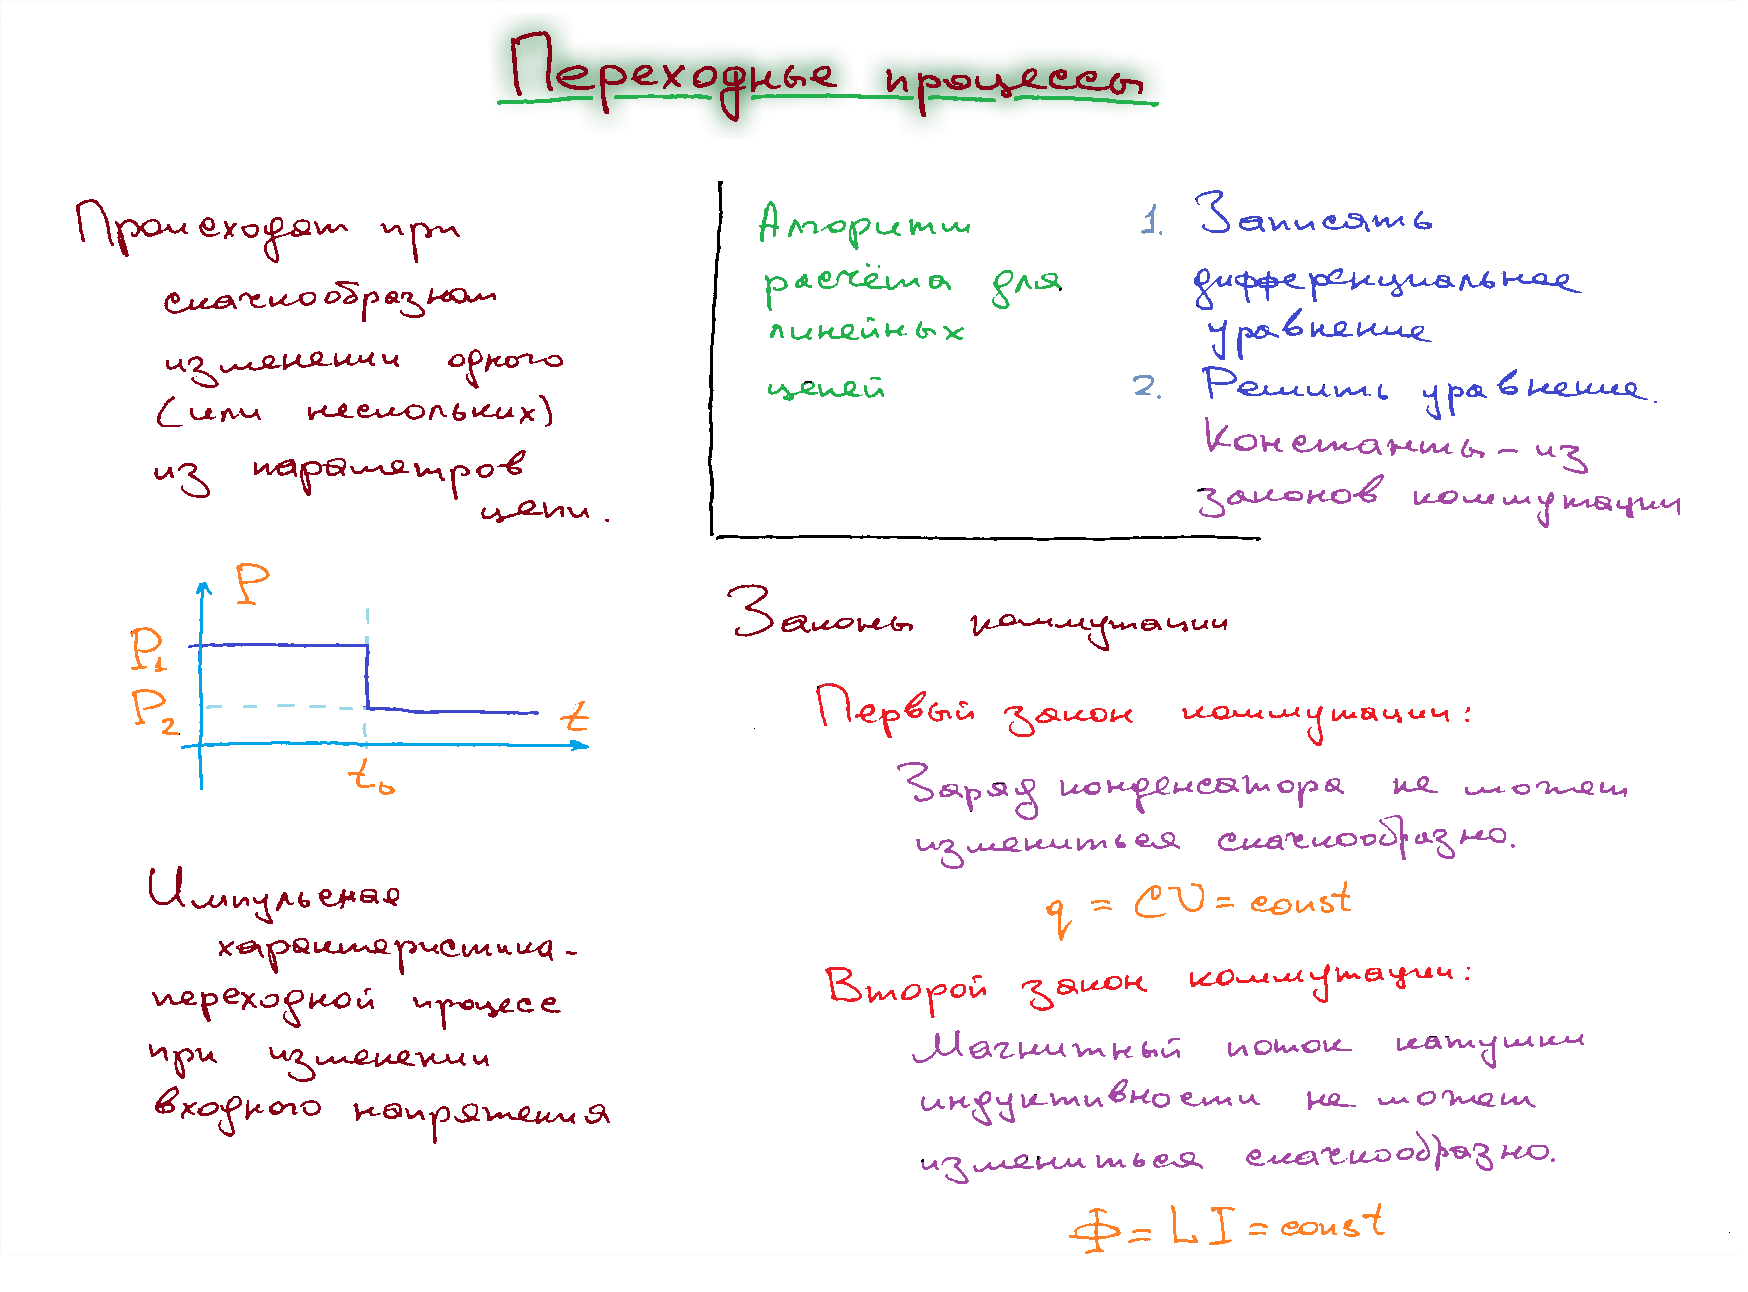 Переходные процессы
Происходят при
скачкообразном
изменении одного
(или нескольких)
из параметров
цепи.
P
P₁
P₂
t
t₀
Импульсная
характеристика -
переходной процесс
при изменении
входного напряжения
Алгоритм
расчёта для
линейных
цепей
1. Записять
дифференциальное
уравнение
2. Решить уравнение.
Константы - из
законов коммутации
Законы коммутации
Первый закон коммутации:
Заряд конденсатора не может
измениться скачкообразно.
q = CU = const
Второй закон коммутации:
Магнитный поток катушки
индуктивности не может
измениться скачкообразно.
Ф = LI = const